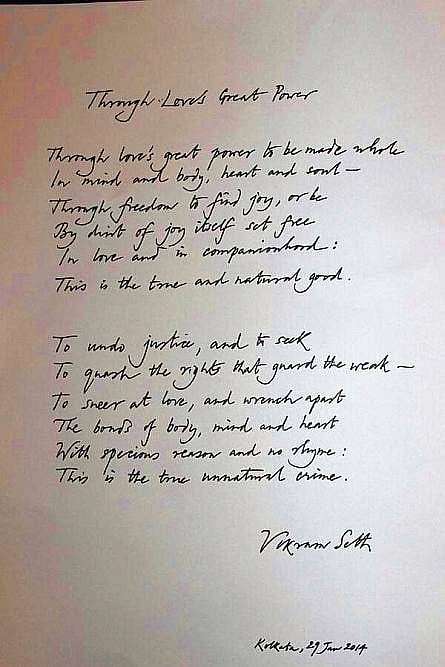 Through Love's Great Power
Through love's great power to be made whole
In mind and body, heart and soul —
Through freedom to find joy, or be
By dint of joy itself set free
In love and in companionhood :
This is the true and natural good.
To undo justice, and to seek
To quash the rights that guard the weak —
To sneer at love, and wrench apart
The bonds of body, mind and heart
With specious reason and no rhyme :
This is the true unnatural crime.
Vikram Seth
Kolkata, 29 Jan 2014